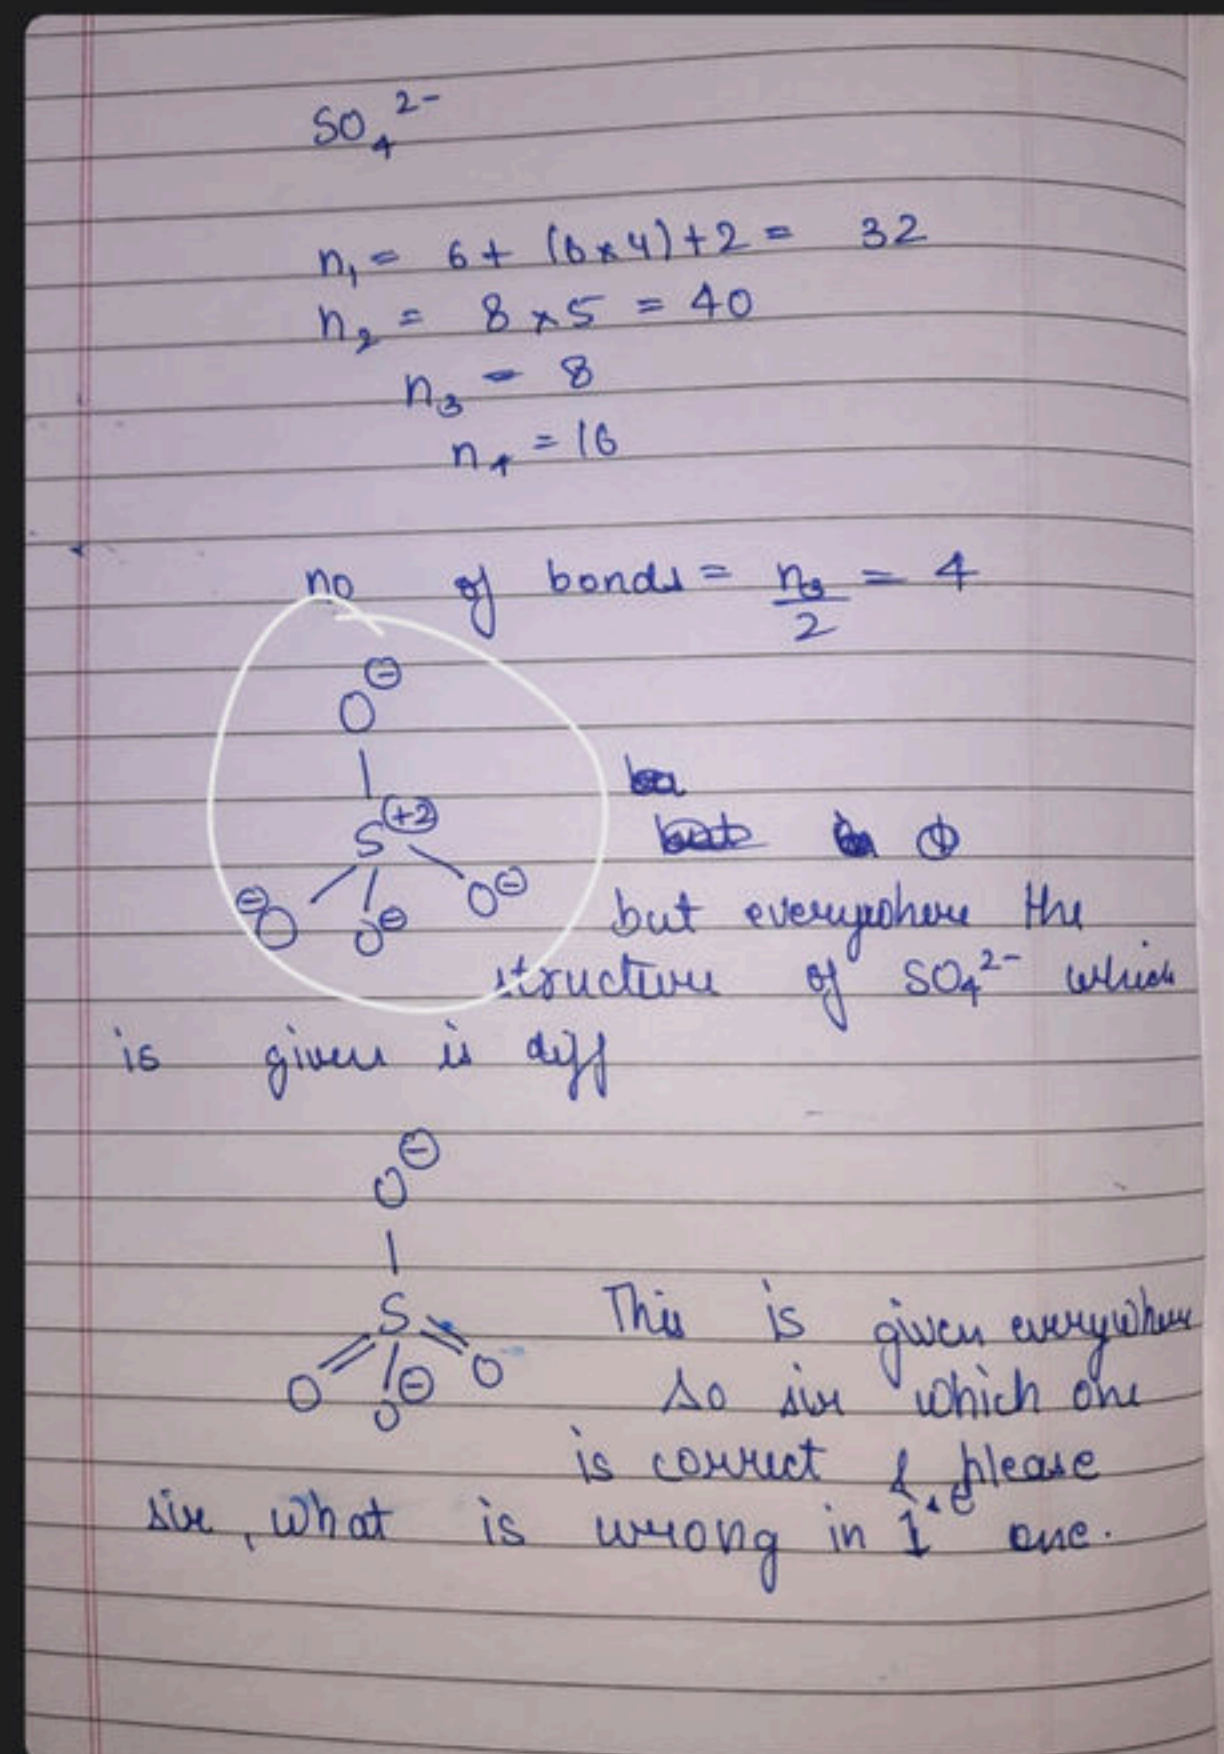 SO₄²⁻
n₁ = 6 + (6×4)+2 = 32
n₂ = 8 × 5 = 40
n₃ = 8
n₄ = 16
no of bonds = n₃/2 = 4
O⊖
S(+2)
⊖O O⊖ O⊖
but everywhere the
structure of SO₄²⁻ which
is given is diff
O⊖
S
O O⊖ O
This is given everywhere
So sir which one
is correct & please
sir, what is wrong in 1st one.